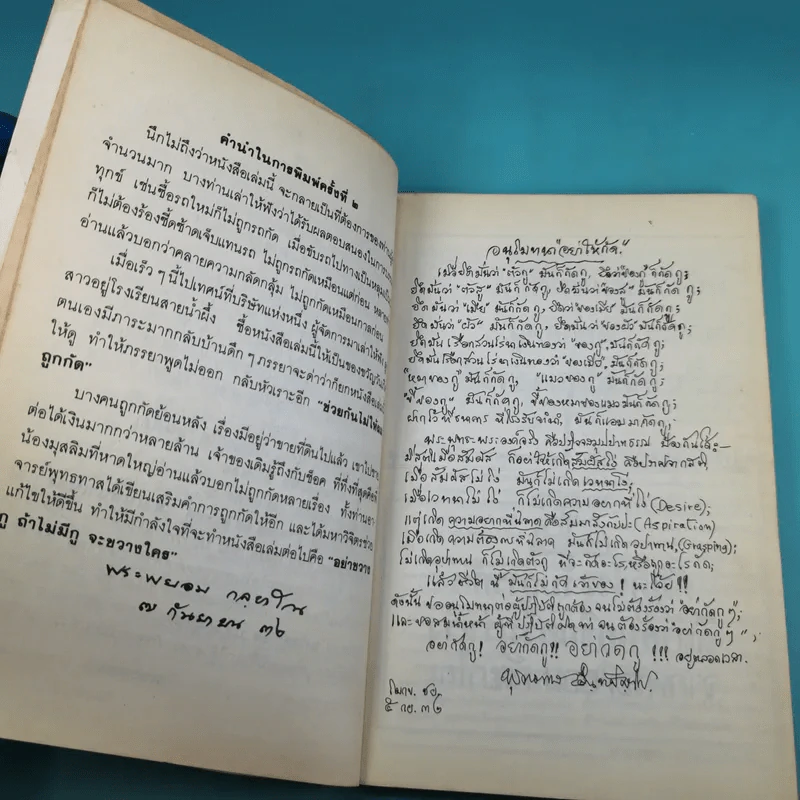 คำนำในการพิมพ์ครั้งที่ ๒
นึกไม่ถึงว่าหนังสือเล่มนี้ จะกลายเป็นที่ต้องการของท่านผู้
จำนวนมาก บางท่านเล่าให้ฟังว่าได้รับผลตอบสนองในการ
ทุกข์ เช่นซื้อรถใหม่ก็ไม่ถูกรถกัด เมื่อขับรถไปทางเป็นหลุมเป็น
ก็ไม่ต้องร้องซี้ดซ้าดเจ็บแทนรถ ไม่ถูกรถกัดเหมือนแต่ก่อน หลาย
อ่านแล้วบอกว่าคลายความกลัดกลุ้ม ไม่ถูกกัดเหมือนกาลก่อน
เมื่อเร็วๆ นี้ไปเทศน์ที่บริษัทแห่งหนึ่ง ผู้จัดการมาเล่าให้ฟัง
สาวอยู่โรงเรียนสายน้ำผึ้ง ซื้อหนังสือเล่มนี้ให้เป็นของขวัญวัน
ตนเองมีภาระมากกลับบ้านดึกๆ ภรรยาจะด่าว่าก็ยกหนังสือเล่ม
ให้ดู ทำให้ภรรยาพูดไม่ออก กลับหัวเราะอีก "ช่วยกันไม่ให้
ถูกกัด"
บางคนถูกกัดย้อนหลัง เรื่องมีอยู่ว่าขายที่ดินไปแล้ว เขาไป
ต่อได้เงินมากกว่าหลายล้าน เจ้าของเดิมรู้ถึงกับช็อค ที่ทึ่งที่สุดคือ
น้องมุสลิมที่หาดใหญ่อ่านแล้วบอกไม่ถูกกัดหลายเรื่อง ทั้งท่านอา-
จารย์พุทธทาสได้เขียนเสริมคำการถูกกัดให้อีก และได้มหาวิจิตรช่วย
แก้ไขให้ดีขึ้น ทำให้มีกำลังใจที่จะทำหนังสือเล่มต่อไปคือ "อย่าขวาง
กู ถ้าไม่มีกู จะขวางใคร"
พระพยอม กลฺยาโณ
๗ กันยายน ๓๒
อนุโมทนา "อย่าให้กัด"
เมื่อยึดมั่นว่า "ตัวกู" มันก็กัดกู, ยึดว่า "ของกู" ก็กัดกู;
ยึดมั่นว่า "ตัวสู" มันก็กัดกู, ยึดมั่นว่า "ของสู" มันก็กัดกู;
ยึดมั่นว่า "เมีย" มันก็กัดกู, ยึดว่า "ของเมีย" มันก็กัดกู;
ยึดมั่นว่า "ผัว" มันก็กัดกู, ยึดมั่นว่า "ของผัว" มันก็กัดกู;
ยึดมั่น เรือกสวนไร่นาเงินทองว่า "ของกู" มันก็กัดกู;
ยึดมั่นเรือกสวนไร่นาเงินทองว่า "ของเมีย" มันก็กัดกู;
"หมาของกู" มันก็กัดกู, "แมวของกู" มันก็กัดกู;
"ขี้ของกู" มันก็กัดกู, ขี้ของหมาของแมวมันก็กัดกู;
ฝากไว้ที่ธนาคาร ที่ได้รับจำนำ, มันก็แอบมากัดกู;
เมื่อสัมผัสไม่โง่ มันก็ไม่เกิดเวทนาโง่,
เมื่อเวทนาไม่โง่ ก็ไม่เกิดความอยากที่โง่ (Desire);
แต่เกิดความอยากที่ฉลาด คือสัมมาสังกัปปะ (Aspiration)
เมื่อเกิดความต้องการที่ฉลาด มันก็ไม่เกิดอุปาทาน, (Grasping);
ไม่เกิดอุปาทาน ก็ไม่เกิดตัวกู ที่จะกัดอะไร, หรือถูกอะไรกัด;
แล้วชีวิตนี้ มันก็ไม่กัดเจ้าของ! นะโว้ย!!
ดังนั้น ขออนุโมทนาต่อผู้ปฏิบัติถูกต้อง จนไม่ต้องร้องว่า "อย่ากัดกูๆ";
และขอสมน้ำหน้า ผู้ที่ปฏิบัติผิด จนต้องร้องว่า "อย่ากัดกูๆ";
อย่ากัดกู! อย่ากัดกู!! อย่ากัดกู!!! อยู่ตลอดเวลา.
พุทธทาส อินทปัญโญ.
โมกข. ชย.
๕ กย. ๓๒